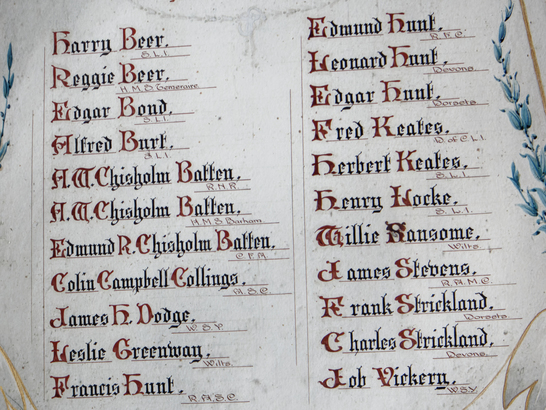 Harry Beer.
S.L.I.
Reggie Beer.
H.M.S Temeraire
Edgar Bond.
S.L.I.
Alfred Burt.
S.L.I.
A.W. Chisholm Batten.
R.N.R.
A.W. Chisholm Batten.
H.M.S Barham
Edmund R. Chisholm Batten.
C.F.A.
Colin Campbell Collings.
A.S.C.
James H. Dodge.
W.S.Y.
Leslie Greenway.
Wilts.
Francis Hunt.
R.A.S.C
Edmund Hunt.
R.F.C.
Leonard Hunt.
Devons.
Edgar Hunt.
Dorsets
Fred Keates.
D. of C.L.I.
Herbert Keates.
S.L.I.
Henry Locke.
S.L.I.
Willie Ransome.
Wilts.
James Stevens.
R.A.M.C.
Frank Strickland.
Dorsets
Charles Strickland.
Devons.
Job Vickery.
W.S.Y.